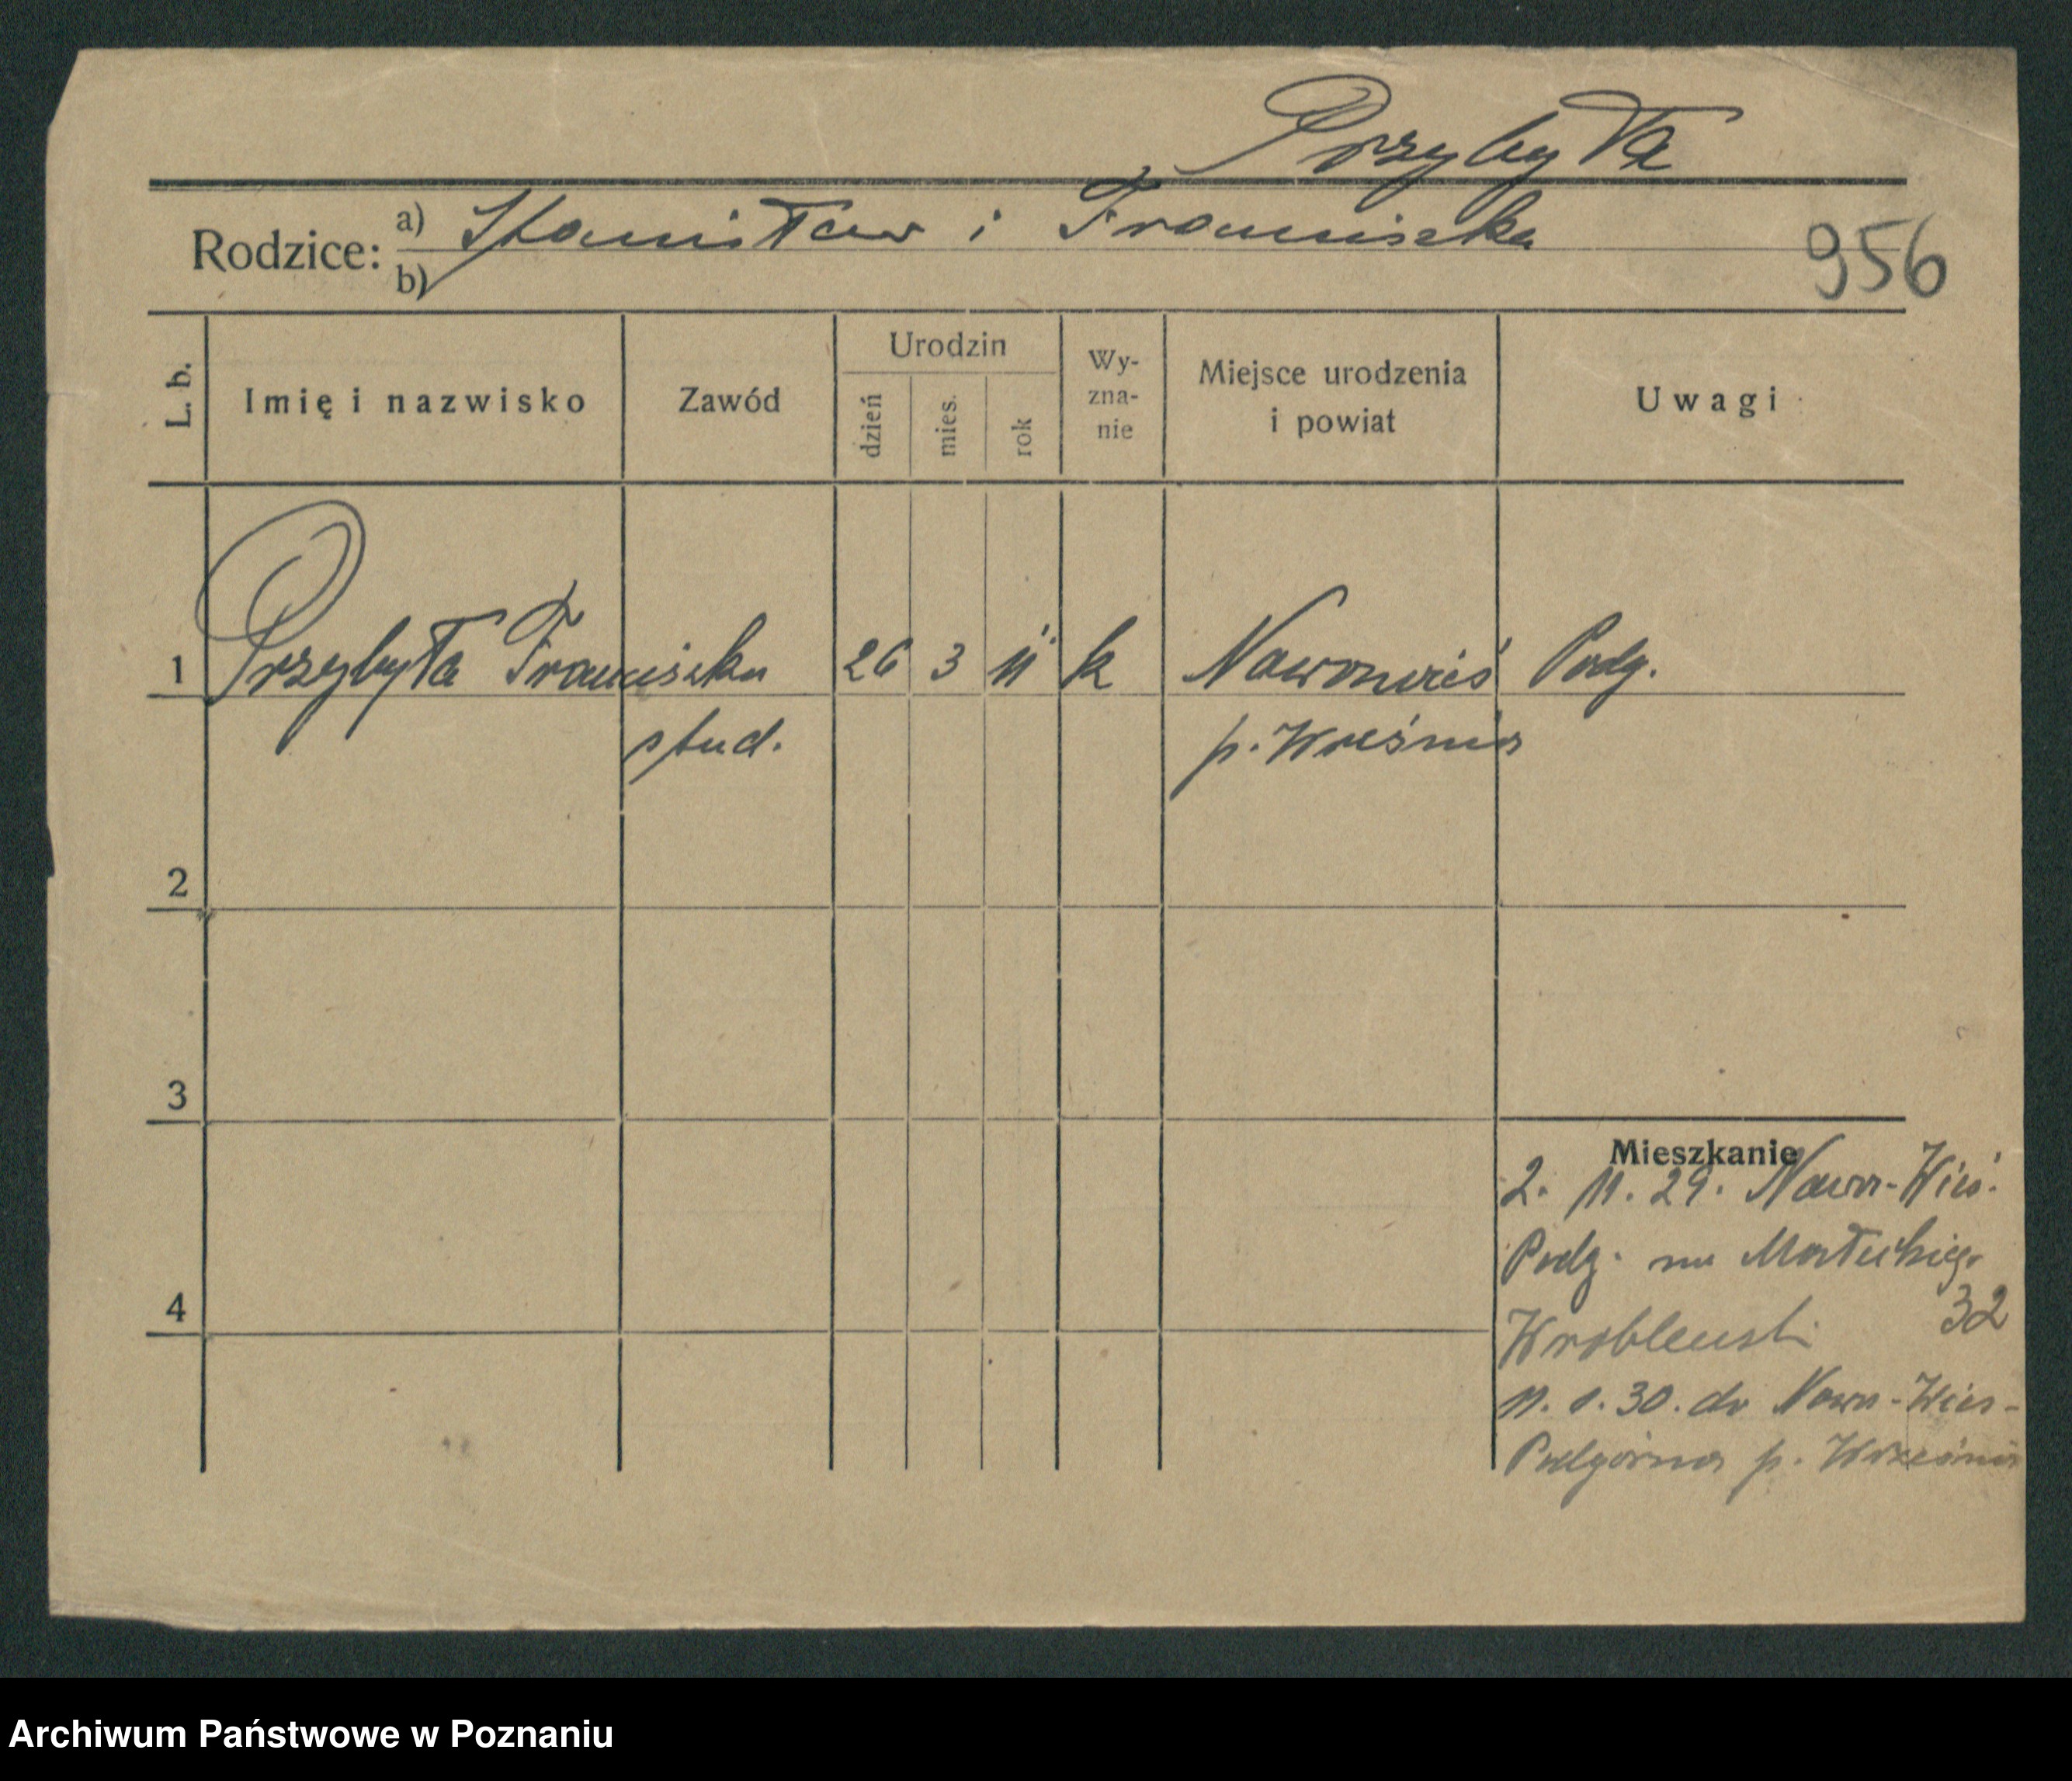 Przybyła
Rodzice: a) Stanisław i Franciszka
b)
956
L. b. Imię i nazwisko Zawód Urodzin dzień mies. rok Wy-zna-nie Miejsce urodzenia i powiat Uwagi
1 Przybyła Franciszka 26 3 11 k Nawowieś Podg.
stud. p. Września
2
3
Mieszkanie
2. 11. 29. Nowa-Wieś.
Podg. Małeckiego
4 32
Wroblewski
30. do Nowa-Wies-
Podgórna p. Września
Archiwum Państwowe w Poznaniu